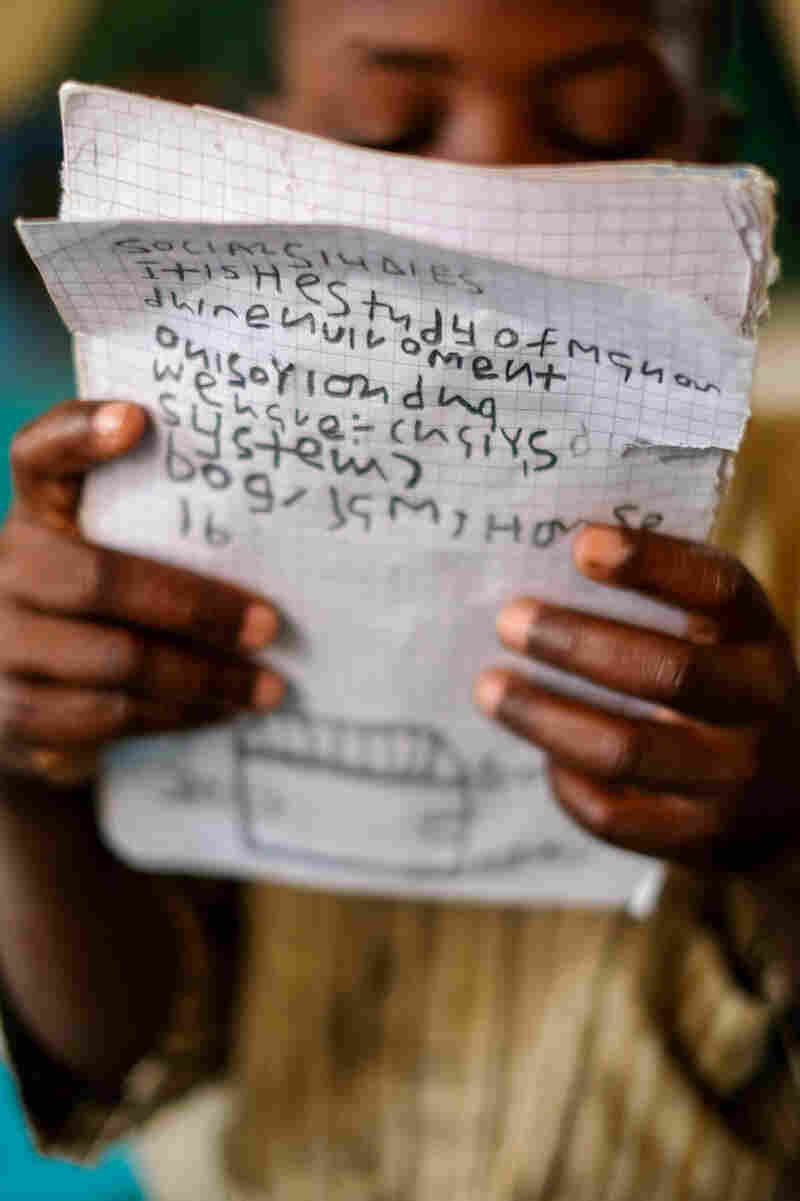 SOCIALSTUDIES
It is Hestudy of manon
duinenviroment
onisoriondng
we have:- chsirs
system,
bog, jam, House
16